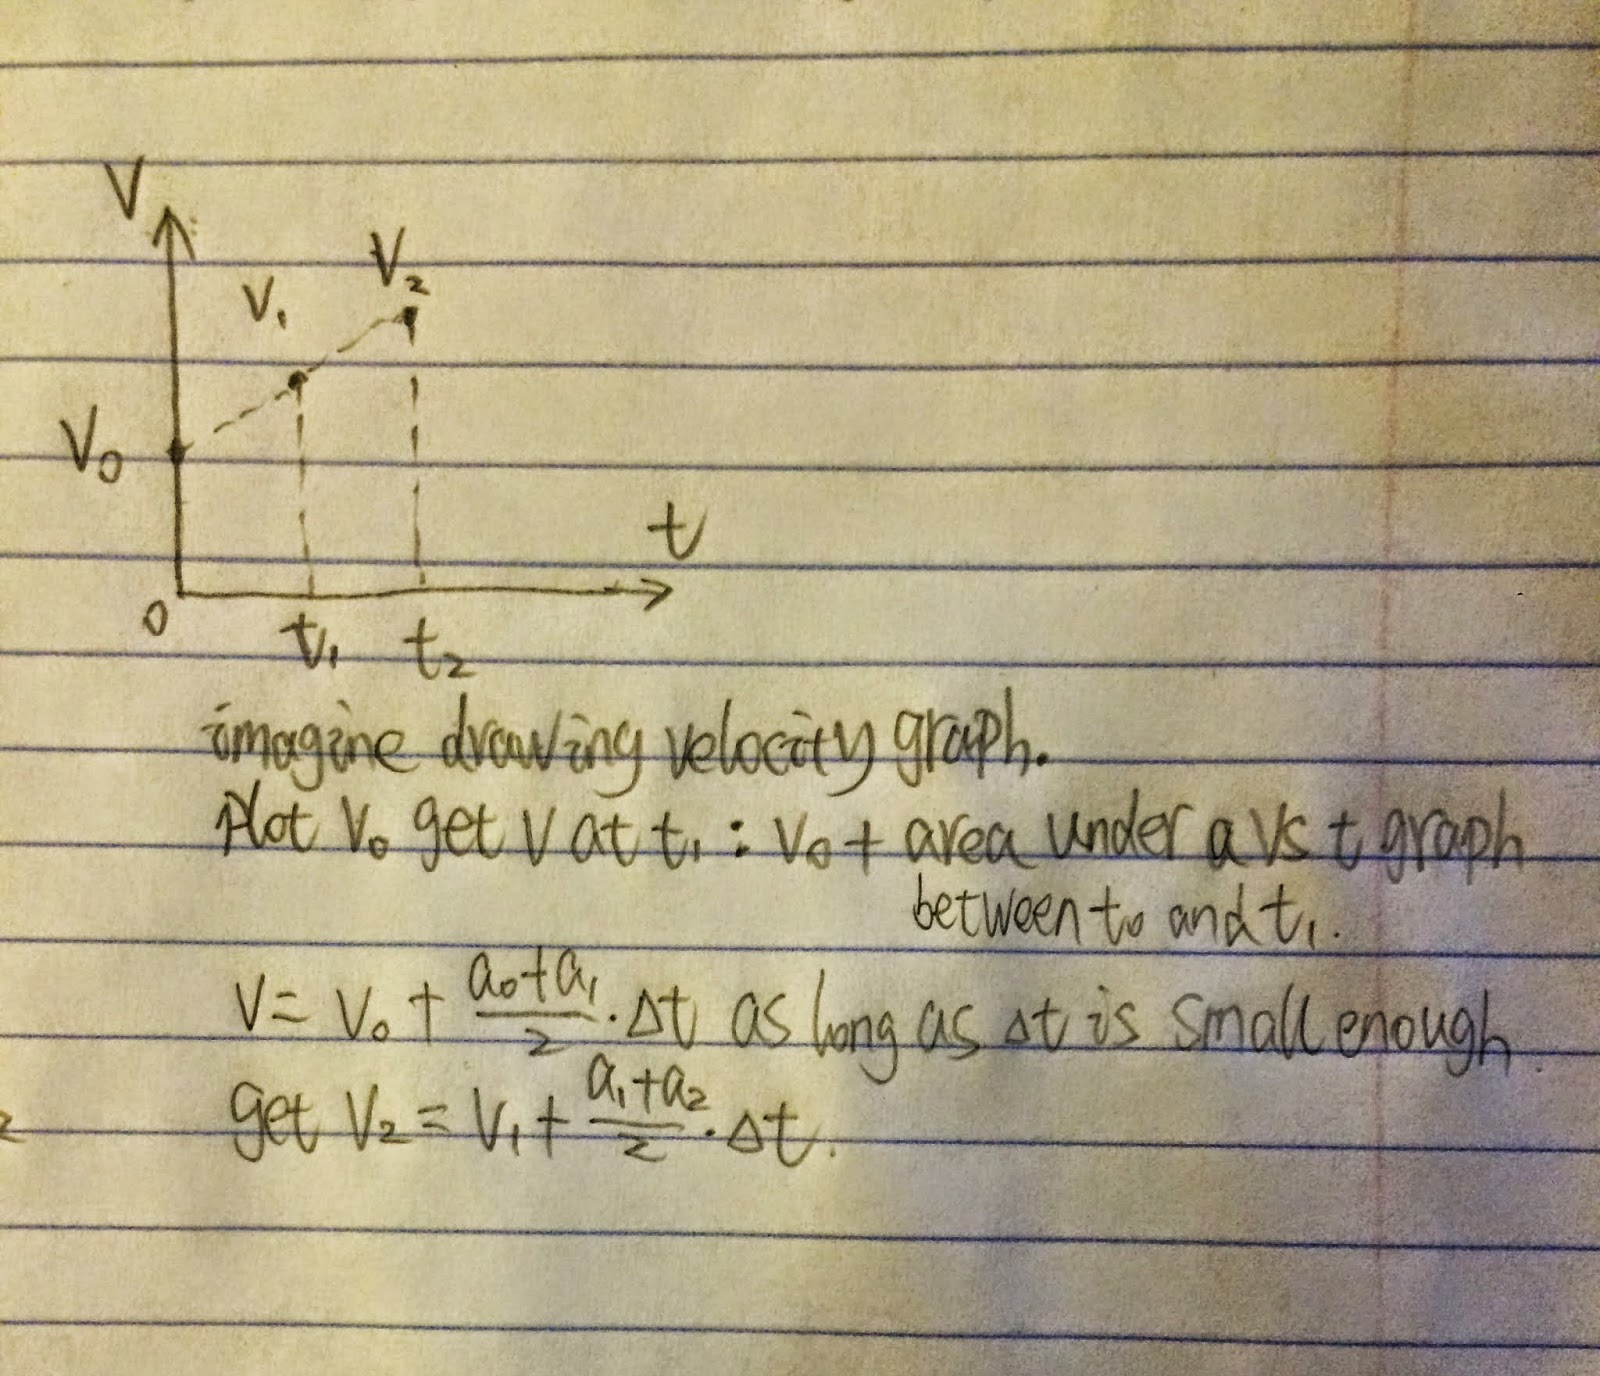 V
V₂
V₁
V₀
t
0
t₁ t₂
imagine drawing velocity graph.
Plot V₀ get V at t₁ : V₀ + area under a vs t graph
between t₀ and t₁.
V = V₀ + (a₀+a₁)/2 · Δt as long as Δt is small enough.
get V₂ = V₁ + (a₁+a₂)/2 · Δt.
2